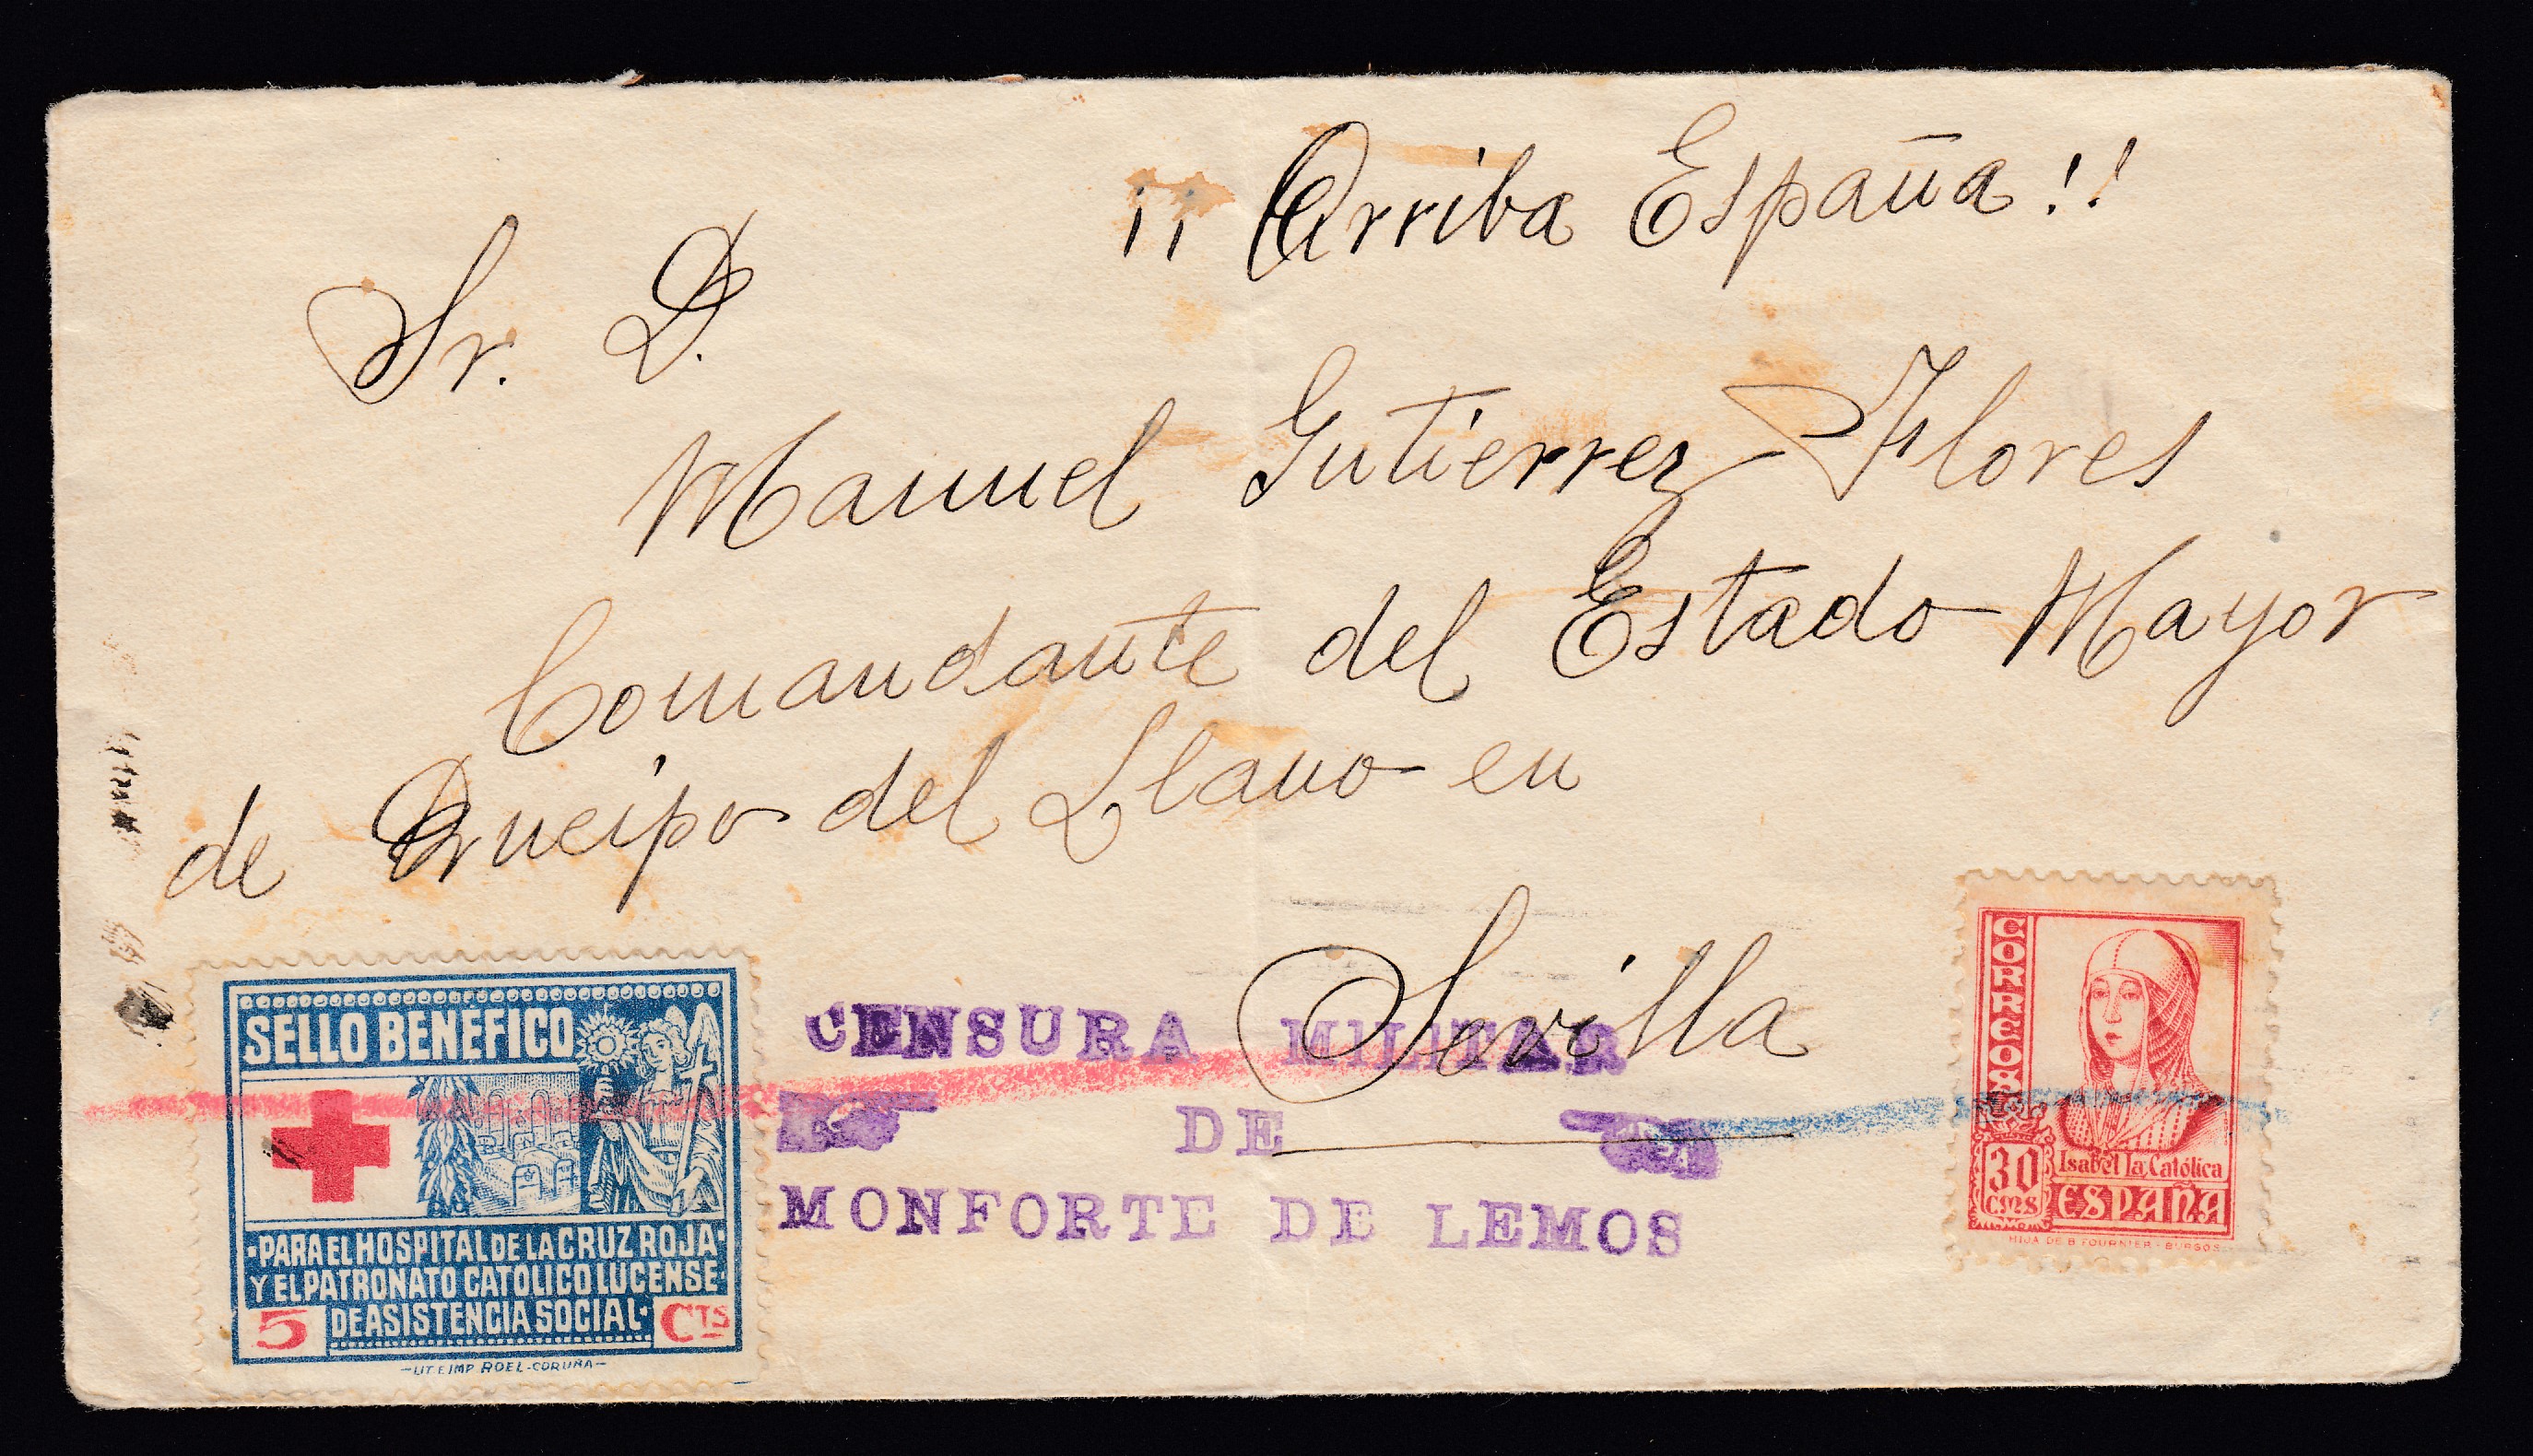 ¡¡ Arriba España!!
Sr. D.
Manuel Gutierrez Flores
Comandante del Estado Mayor
de Queipo del Llano en
Sevilla
CENSURA MILITAR
DE
MONFORTE DE LEMOS
SELLO BENÉFICO
·PARA EL HOSPITAL DE LA CRUZ ROJA·
Y EL PATRONATO CATOLICO LUCENSE·
DE ASISTENCIA SOCIAL·
5 CTS
-LIT E IMP ROEL-CORUÑA-
CORREOS
30 CMS
Isabel la Católica
ESPAÑA
HIJA DE B. FOURNIER - BURGOS